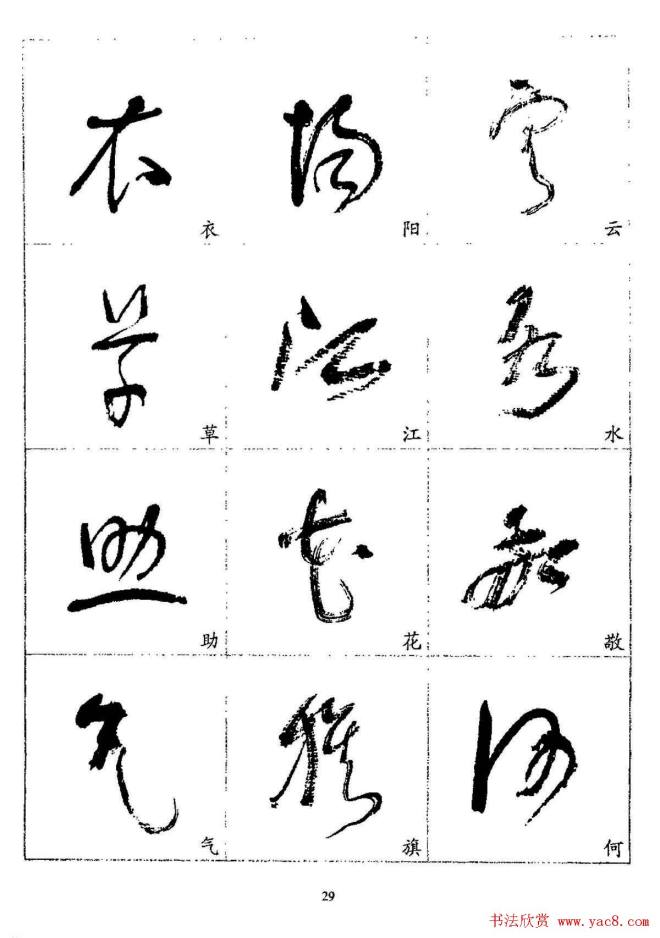 衣 阳 云
草 江 水
助 花 敬
气 旗 何
29
书法欣赏 www.yac8.com